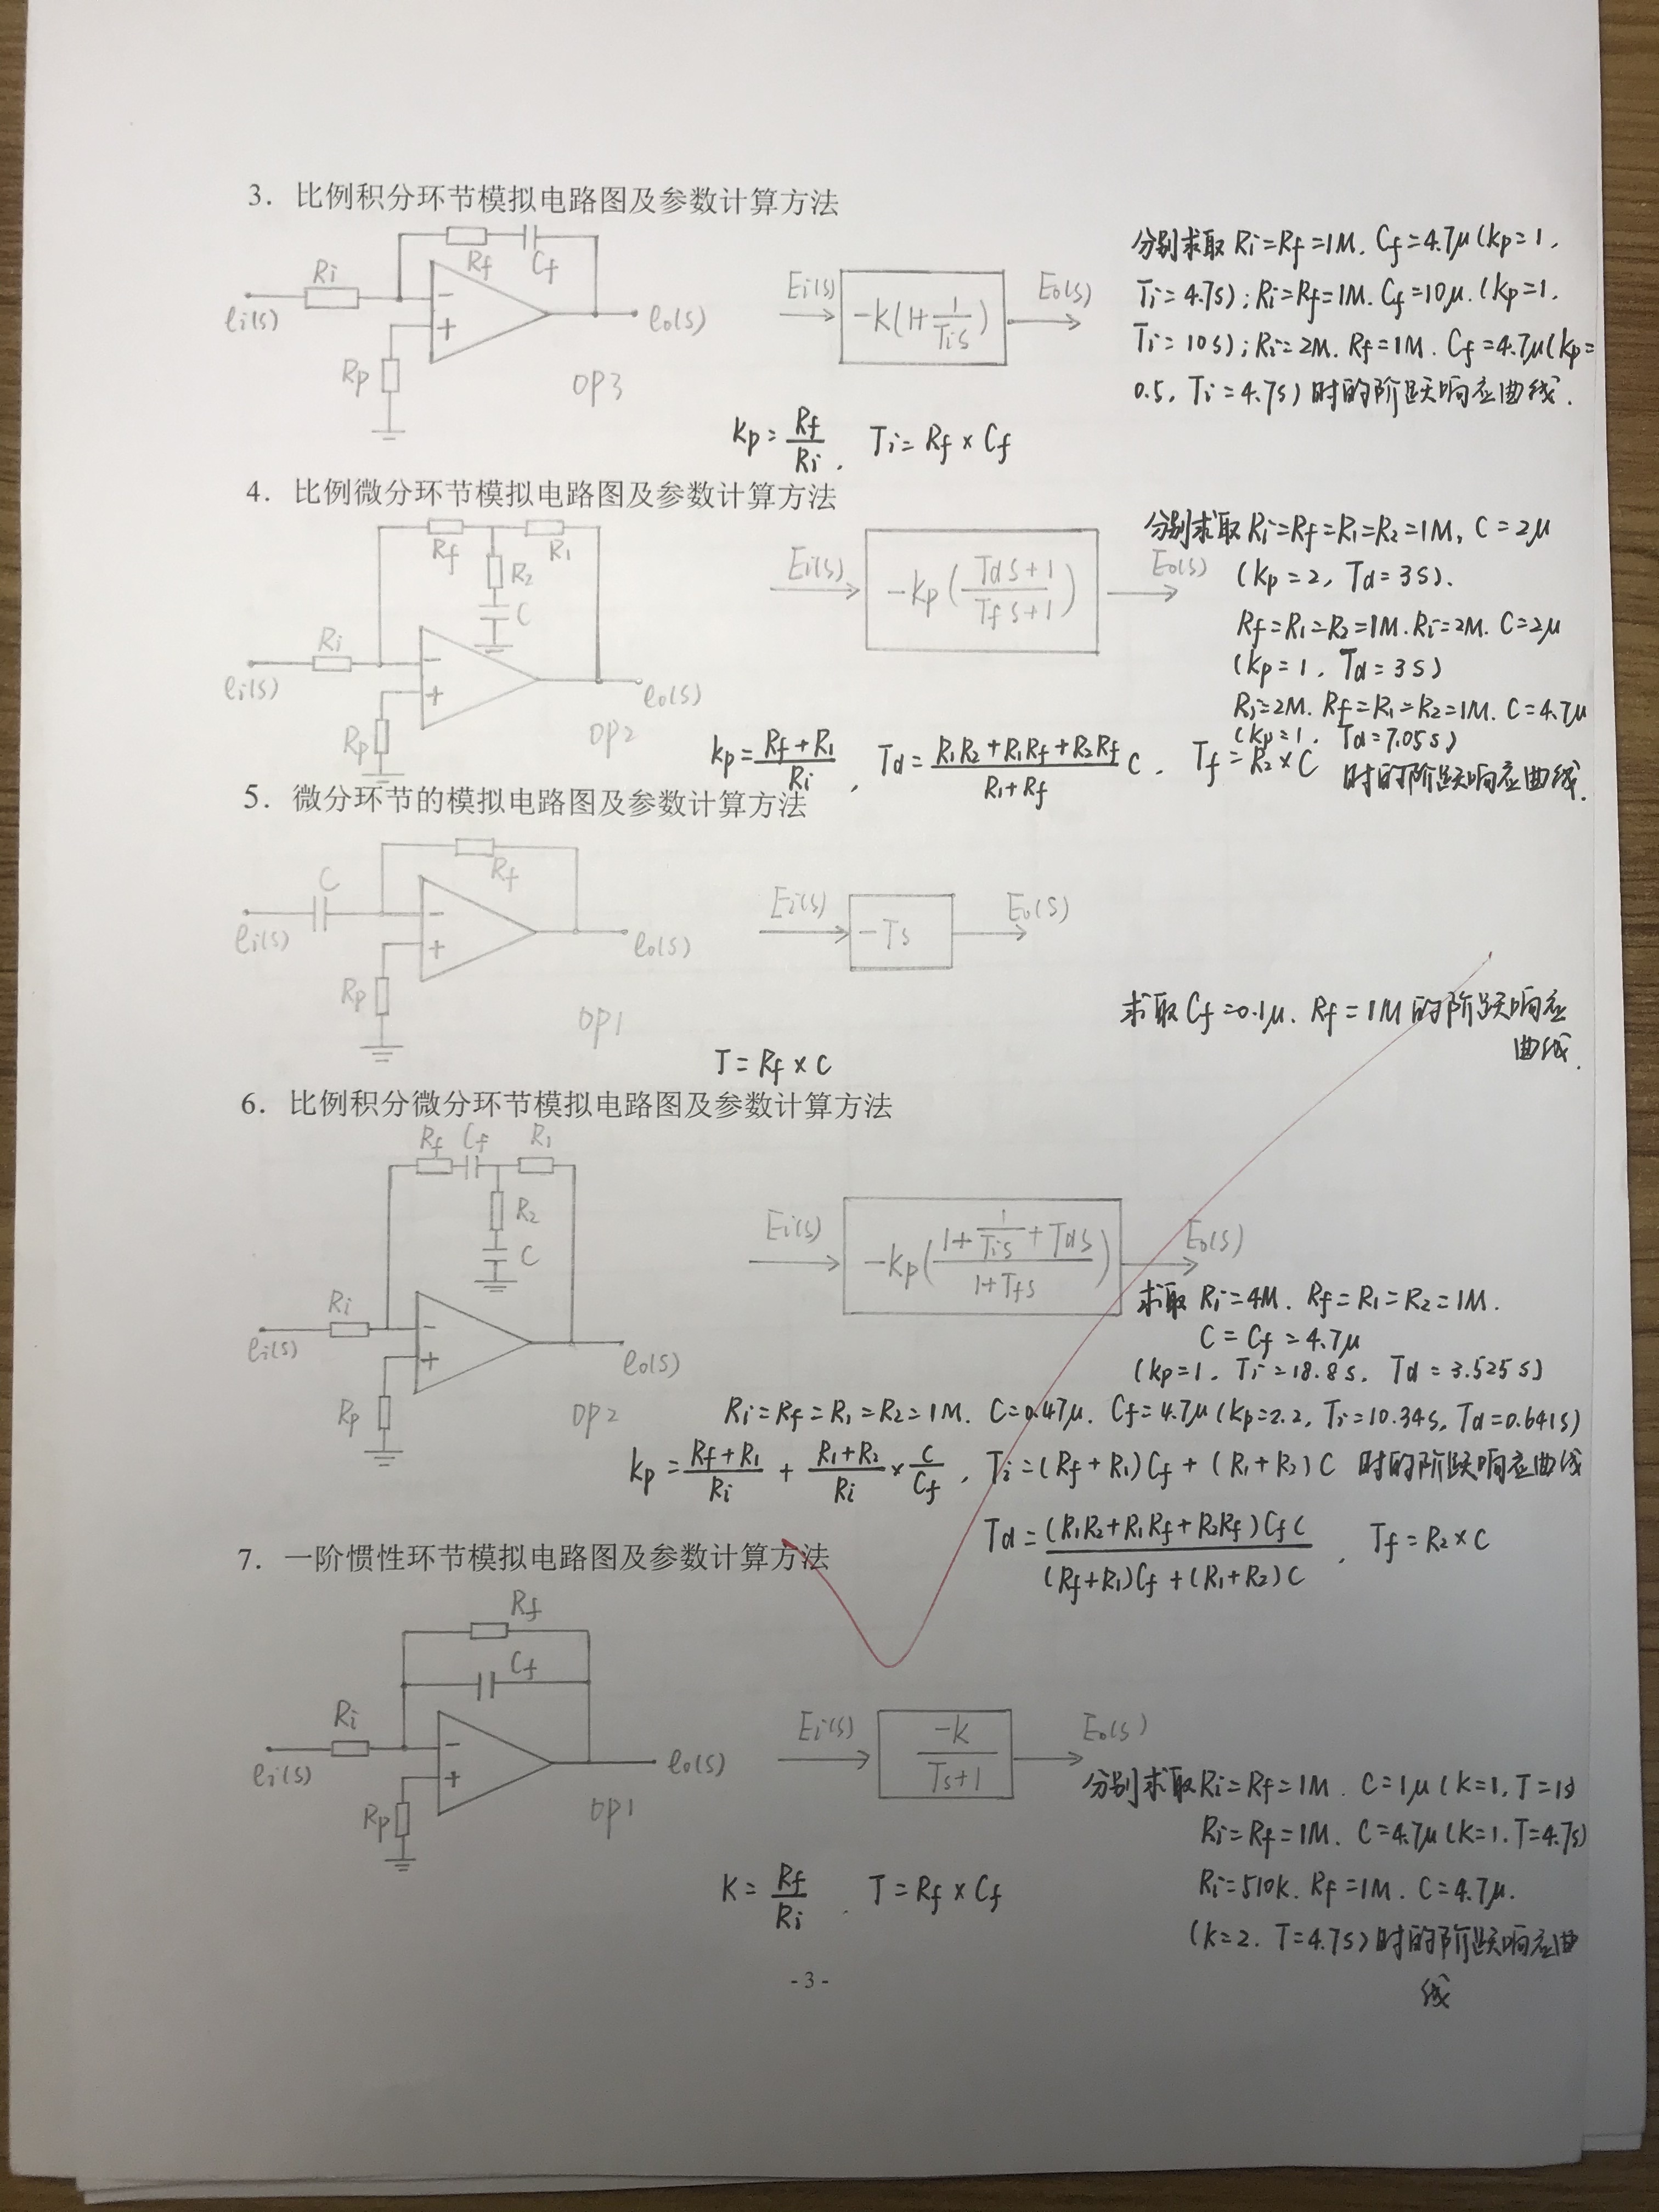 3. 比例积分环节模拟电路图及参数计算方法
Ri
Rf
Cf
ei(s)
Rp
eo(s)
OP3
Ei(s)
-K(1+\frac{1}{Tis})
Eo(s)
分别求取 Ri=Rf=1M. Cf=4.7μ(kp=1,
Ti=4.7s);Ri=Rf=1M. Cf=10μ.(kp=1,
Ti=10s);Ri=2M. Rf=1M. Cf=4.7μ(kp=
0.5, Ti=4.7s)时的阶跃响应曲线.
kp=\frac{Rf}{Ri}, Ti=Rf×Cf
4. 比例微分环节模拟电路图及参数计算方法
Rf
R1
R2
C
Ri
ei(s)
Rp
eo(s)
OP2
Ei(s)
-kp(\frac{Tds+1}{Tfs+1})
Eo(s)
分别求取Ri=Rf=R1=R2=1M, C=2μ
(kp=2, Td=3s).
Rf=R1=R2=1M.Ri=2M. C=2μ
(kp=1, Td=3s)
Ri=2M. Rf=R1=R2=1M. C=4.7μ
(kp=1, Td=7.05s)
时的阶跃响应曲线.
kp=\frac{Rf+R1}{Ri}, Td=\frac{R1R2+R1Rf+R2Rf}{R1+Rf}C, Tf=R2×C
5. 微分环节的模拟电路图及参数计算方法
C
Rf
ei(s)
Rp
eo(s)
OP1
Ei(s)
-Ts
Eo(s)
求取Cf=0.1μ. Rf=1M的阶跃响应
曲线.
T=Rf×C
6. 比例积分微分环节模拟电路图及参数计算方法
Rf
Cf
R1
R2
C
Ri
ei(s)
Rp
eo(s)
OP2
Ei(s)
-kp(\frac{1+\frac{1}{Tis}+Tds}{1+Tfs})
Eo(s)
求取 Ri=4M. Rf=R1=R2=1M.
C=Cf=4.7μ
(kp=1, Ti=18.8s, Td=3.525s)
Ri=Rf=R1=R2=1M. C=0.47μ. Cf=4.7μ(kp=2.2, Ti=10.34s, Td=0.641s)
kp=\frac{Rf+R1}{Ri}+\frac{R1+R2}{Ri}×\frac{C}{Cf}, Ti=(Rf+R1)Cf+(R1+R2)C 时的阶跃响应曲线
Td=\frac{(R1R2+R1Rf+R2Rf)CfC}{(Rf+R1)Cf+(R1+R2)C}, Tf=R2×C
7. 一阶惯性环节模拟电路图及参数计算方法
Rf
Cf
Ri
ei(s)
Rp
eo(s)
OP1
Ei(s)
\frac{-k}{Ts+1}
Eo(s)
分别求取Ri=Rf=1M. C=1μ(K=1, T=1s)
Ri=Rf=1M. C=4.7μ(K=1. T=4.7s)
Ri=510K. Rf=1M. C=4.7μ.
(k=2. T=4.7s)时的阶跃响应曲
线
K=\frac{Rf}{Ri}, T=Rf×Cf
- 3 -